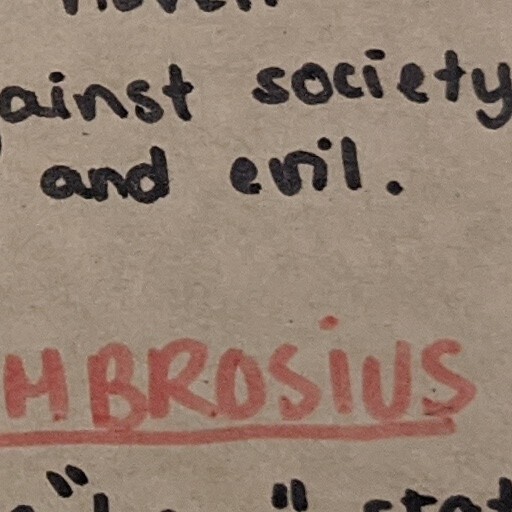 ainst society
and evil.
MBROSIUS